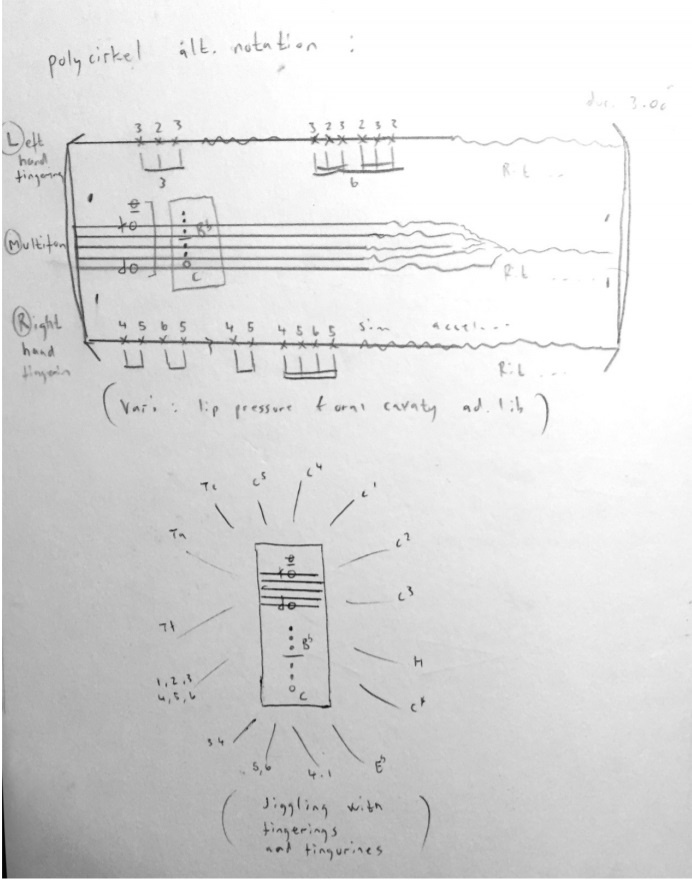 polycirkel alt. notation :
dur. 3.00
Left
hand
fingering
3 2 3
3 2 3 2 3 2
3
6
Rit ...
Multifon
B♭
C
Rit .....
Right
hand
4 5 6 5
4 5
4 5 6 5
sim accel...
Rit ...
(Vari : lip pressure & oral cavaty ad. lib)
Tc
C5
C4
C1
Ta
C2
C3
Tf
H
1, 2, 3
4, 5, 6
3 4
5, 6
4 . 1
E♭
B♭
C
(Jiggling with
fingerings
and fingurines)